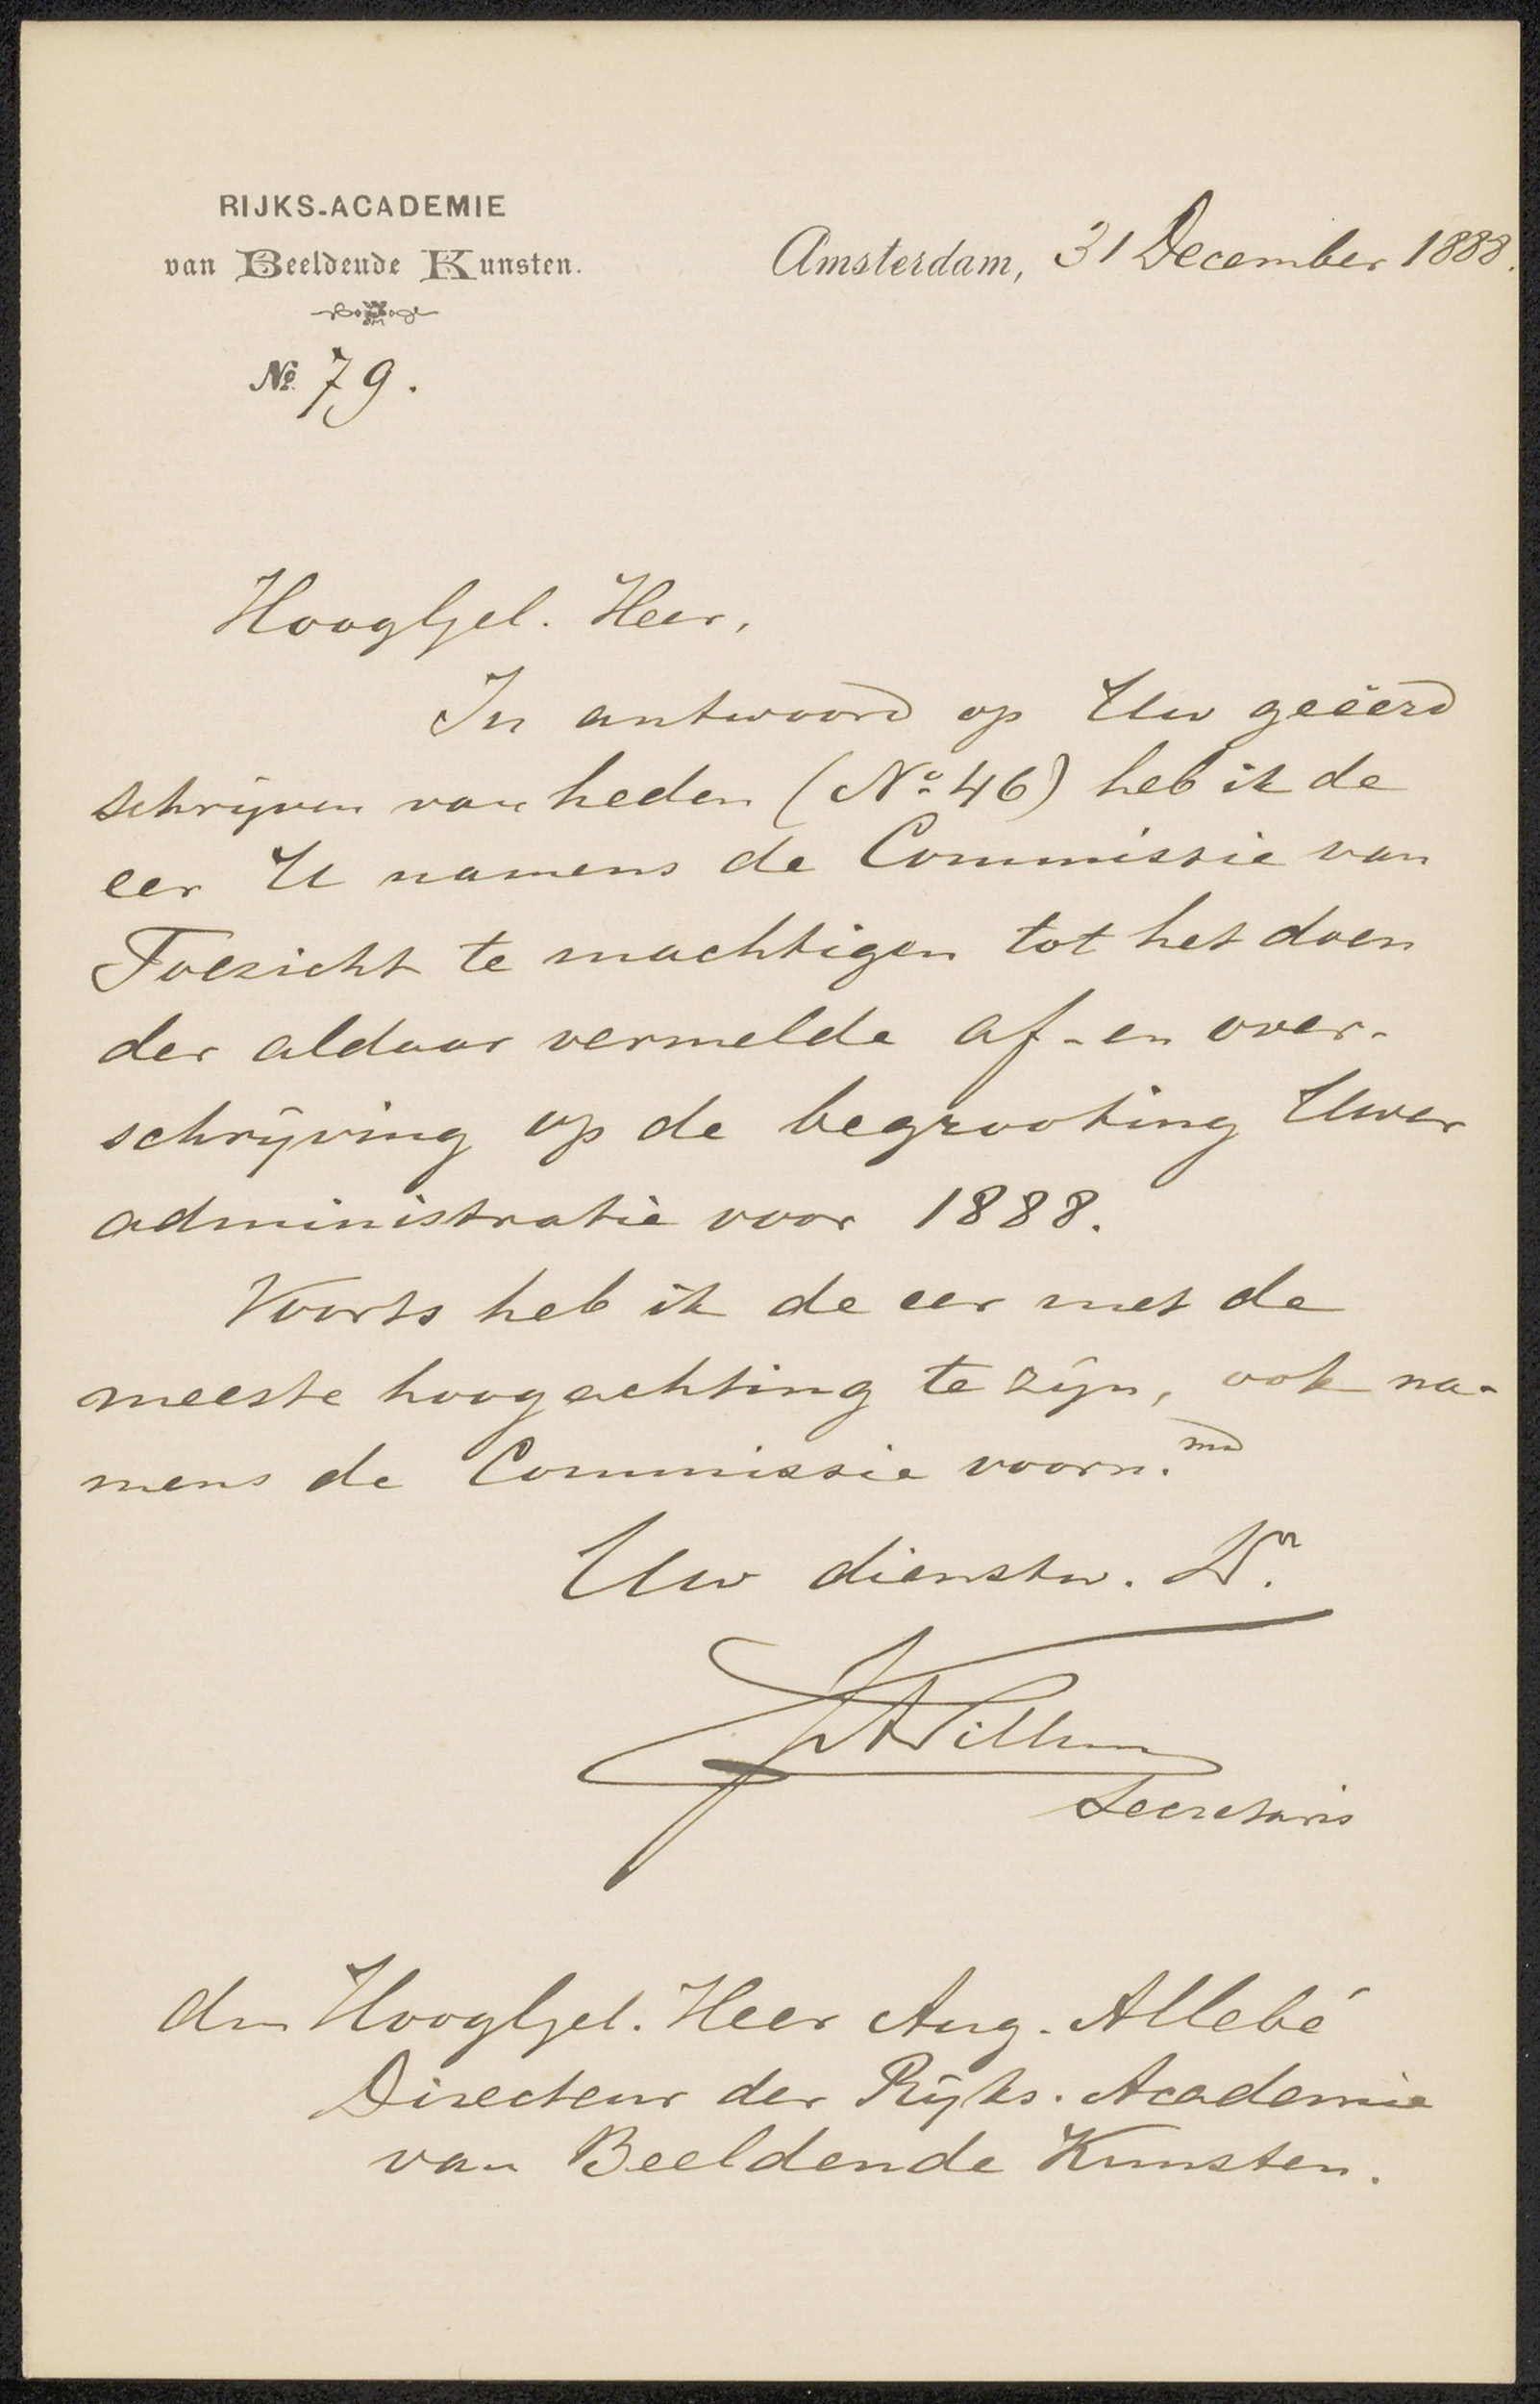 RIJKS-ACADEMIE
van Beeldende Kunsten.
Amsterdam, 31 December 1888.
No. 79.
HoogGel. Heer,
In antwoord op Uw geëerd
schrijven van heden (No. 46) heb ik de
eer U namens de Commissie van
Toezicht te machtigen tot het doen
der aldaar vermelde af- en over-
schrijving op de begrooting Uwer
administratie voor 1888.
Voorts heb ik de eer met de
meeste hoogachting te zijn, ook na-
mens de Commissie voorn.md
Uw dienstw. Dr.
Secretaris
den HoogGel. Heer Aug. Allebé
Directeur der Rijks-Academie
van Beeldende Kunsten.